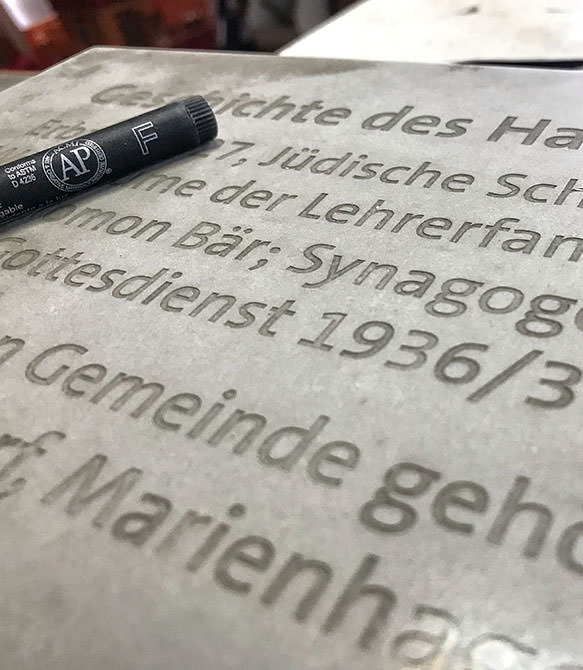 Geschichte des Ha
7, Jüdische Sch
me der Lehrerfan
omon Bär; Synagog
Gottesdienst 1936/3
n Gemeinde geho
rf, Marienhag
F
AP
Conforms
to ASTM
D 4236